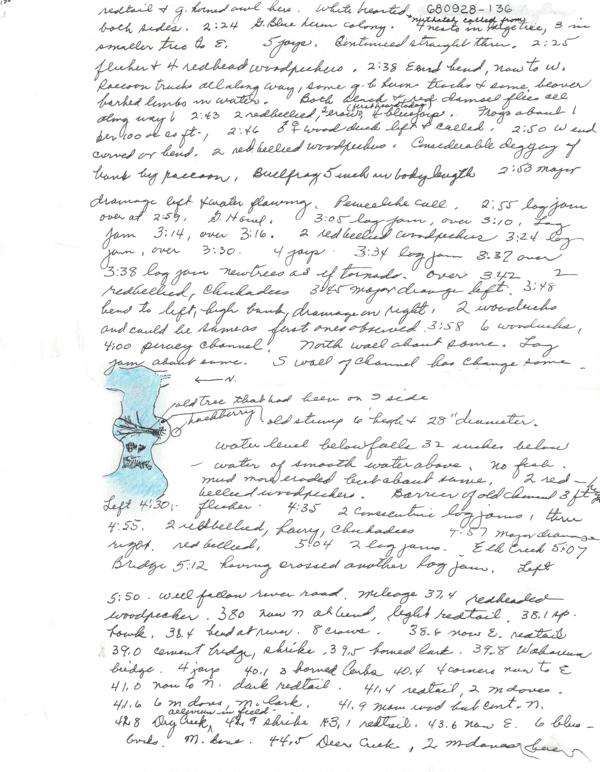 redtail & g. horned owl here. White breasted nuthatch called from 680928-136
both sides. 2:24 G. Blue heron colony. 4 nests in large tree, 3 in
smaller tree to E. 5 jays. Continued straight thru. 2:25
flicker & 4 redhead woodpeckers. 2:38 E end bend, now to W.
Raccoon tracks all along way, some g. b heron tracks & some beaver
barked limbs in water. Both black & red damsel flies all
along way (first frogs today) 2:43 2 redbellied, crows, 4 bluejays. Frogs about 1
per 100 or so ft., 2:46 wood duck left & called. 2:50 W end
curved or bend. 2 redbellied woodpeckers. Considerable digging of
bank by raccoon. Bullfrog 5 inch in body length 2:53 major
drainage left & water flowing. Pewee like call. 2:55 log jam
over at 2:59. G. H owl. 3:05 log jam, over 3:10. Log
jam 3:14, over 3:16. 2 redbellied woodpeckers 3:24 log
jam, over 3:30. 4 jays. 3:34 log jam 3:37 over
3:38 log jam new trees as if tornado. Over 3:42 2
redbellied, Chickadees 3:45 major drainage left. 3:48
bend to left, high bank, drainage on right. 2 woodducks
and could be same as first ones observed 3:58 6 woodducks,
4:00 percey channel. North wall about same. Log
jam about same. S wall of channel has change some.
← N.
old tree that had been on S side
hackberry old stump 6' high & 28" diameter.
water level below falls 32 inches below
water of smooth water above. No fish.
mud more eroded but about same, 2 red-
bellied woodpeckers. Barrier of old channel 3 ft
Left 4:30. flicker. 4:35 2 consecutive log jams, thru
4:55. 2 redbellied, hairy, chickadees 4:57 major drainage
right. redbellied, 5:04 2 log jams. Elk Creek 5:07
Bridge 5:12 having crossed another log jam. Left
5:50. will follow river road. Mileage 37.4 redheaded
woodpecker. 38.0 now N at bend, light redtail. 38.1 sp.
hawk. 38.4 bend at river. 8 crows. 38.6 now E. redtail
39.0 cement bridge, shrike. 39.5 horned lark. 39.8 Wakarusa
bridge. 4 jays 40.1 3 horned larks 40.4 4 corners now to E
41.0 now to N. dark redtail. 41.4 redtail, 2 m doves.
41.6 6 m doves, m. lark. 41.9 main road but cont. N.
42.8 Dry Creek, alluvium in field 42.9 shrike 43.1 redtail. 43.6 now E. 6 blue-
birds. M. dove. 44.5 Deer Creek, 2 m doves